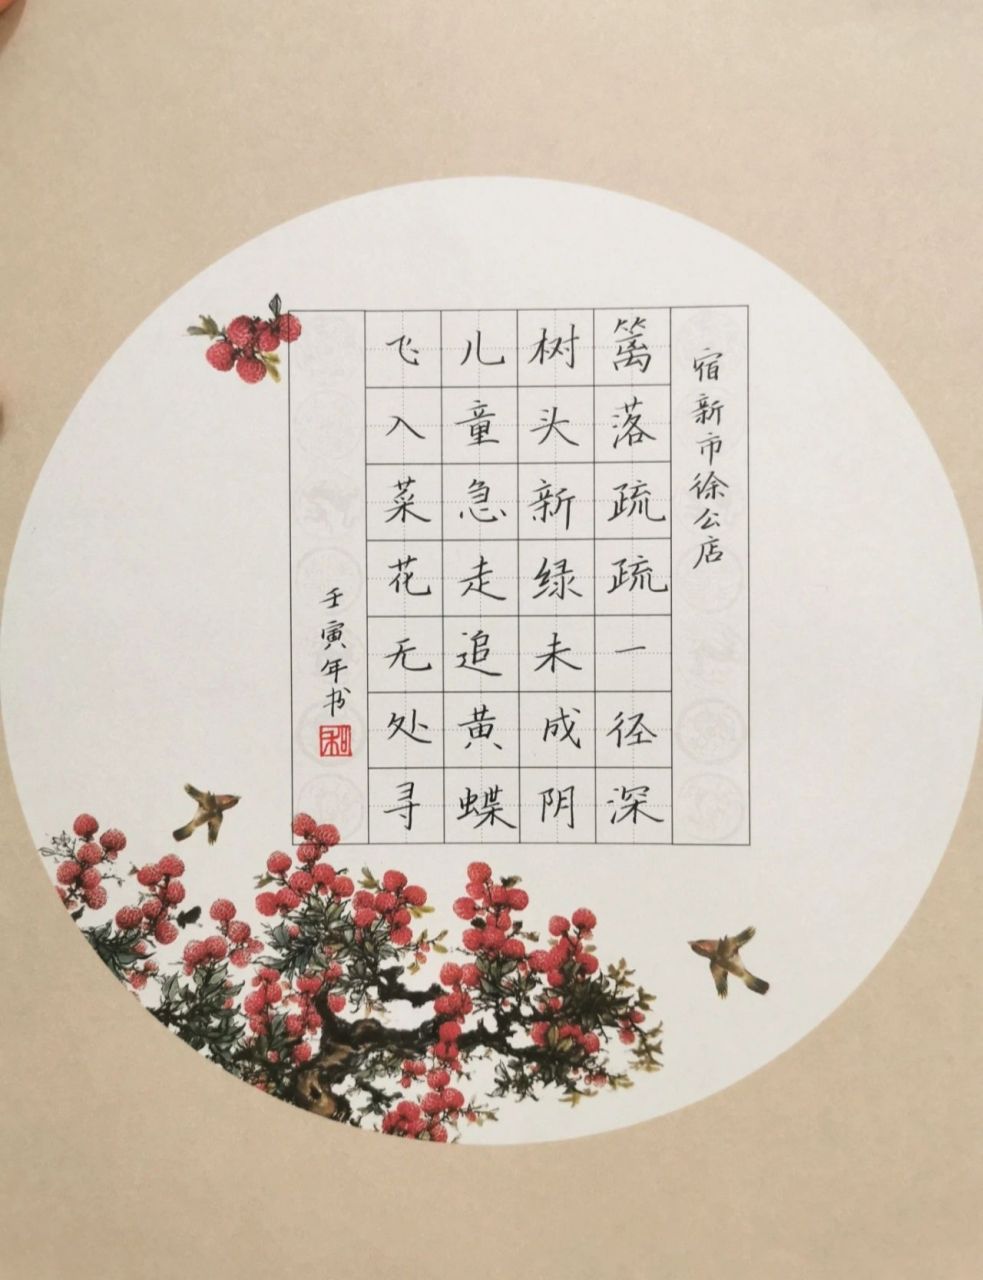 宿新市徐公店
篱落疏疏一径深
树头新绿未成阴
儿童急走追黄蝶
飞入菜花无处寻
壬寅年书